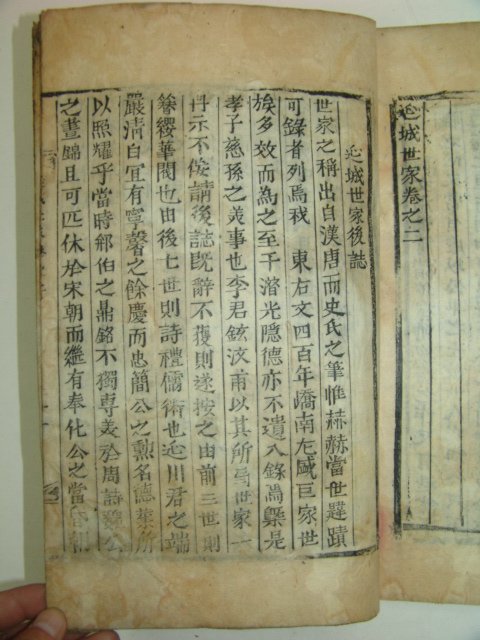 延城世家卷之二
延城世家後誌
世家之稱出自漢唐而史氏之筆惟赫赫當世違蹟
可錄者列焉我 東右文四百年嶠南尤盛巨家世
族多效而爲之至于潛光隱德亦不遺入錄焉槩是
孝子慈孫之美事也李君鉉汶甫以其所厚世家一
冊示不佞請後誌旣辭不獲則遂按之由前三世則
簪纓華閥也由後七世則詩禮儒術也延川君之端
嚴淸白宜有寧馨之餘慶而忠簡公之勳名德業所
以照耀乎當時郁伯之鼎銘不獨專美於周誌魏公
之晝錦且可匹休於宋朝而繼有奉化公之當昏朝